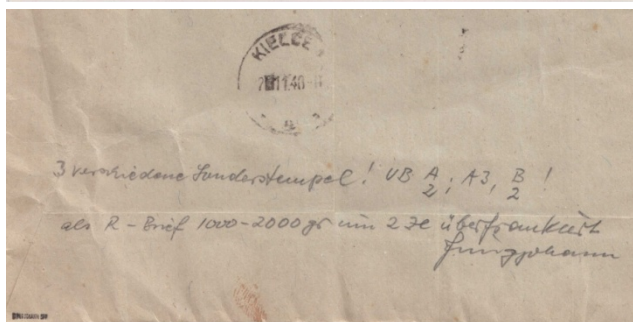 KIELCE
11.40
3 verschiedene Sonderstempel! UB A/2; A3, B/2!
als R-Brief 1000-2000 gr um 2 Zł überfrankiert
Jungjohann